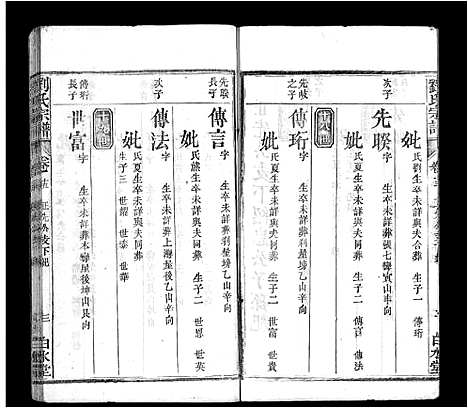 劉氏宗譜
妣 氏劉生卒未詳與夫合葬 生子一 傳珩
次子
先聯 字 生卒未詳葬張七嶴寅山申向
妣 氏夏生卒未詳與夫同葬 生子二 傳言 傳法
先岐之子
傳珩 字 生卒未詳葬剎星塝乙山辛向
妣 氏夏生卒未詳與夫同葬 生子二 世富 世貴
白水堂
先聯長子
傳言 字 生卒未詳葬剎星塝乙山辛向
妣 氏熊生卒未詳與夫同葬 生子二 世恩 世英
次子
傳法 字 生卒未詳葬上海星後乙山辛向
妣 氏夏生卒未詳與夫同葬
生子三 世經 世 世華
傳珩長子
世富 字 生卒未詳葬本灣屋後坤山艮向
劉氏宗譜
卷
三
白水堂